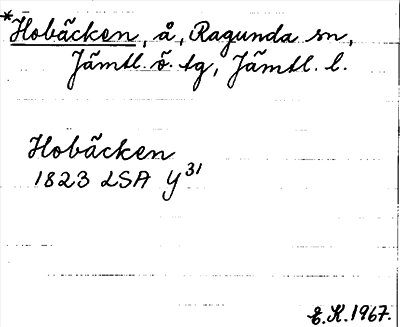 *Hobäcken, å, Ragunda sn,
Jämtl. ö. tg, Jämtl. l.
Hobäcken
1823 LSA Y31
E.K. 1967.